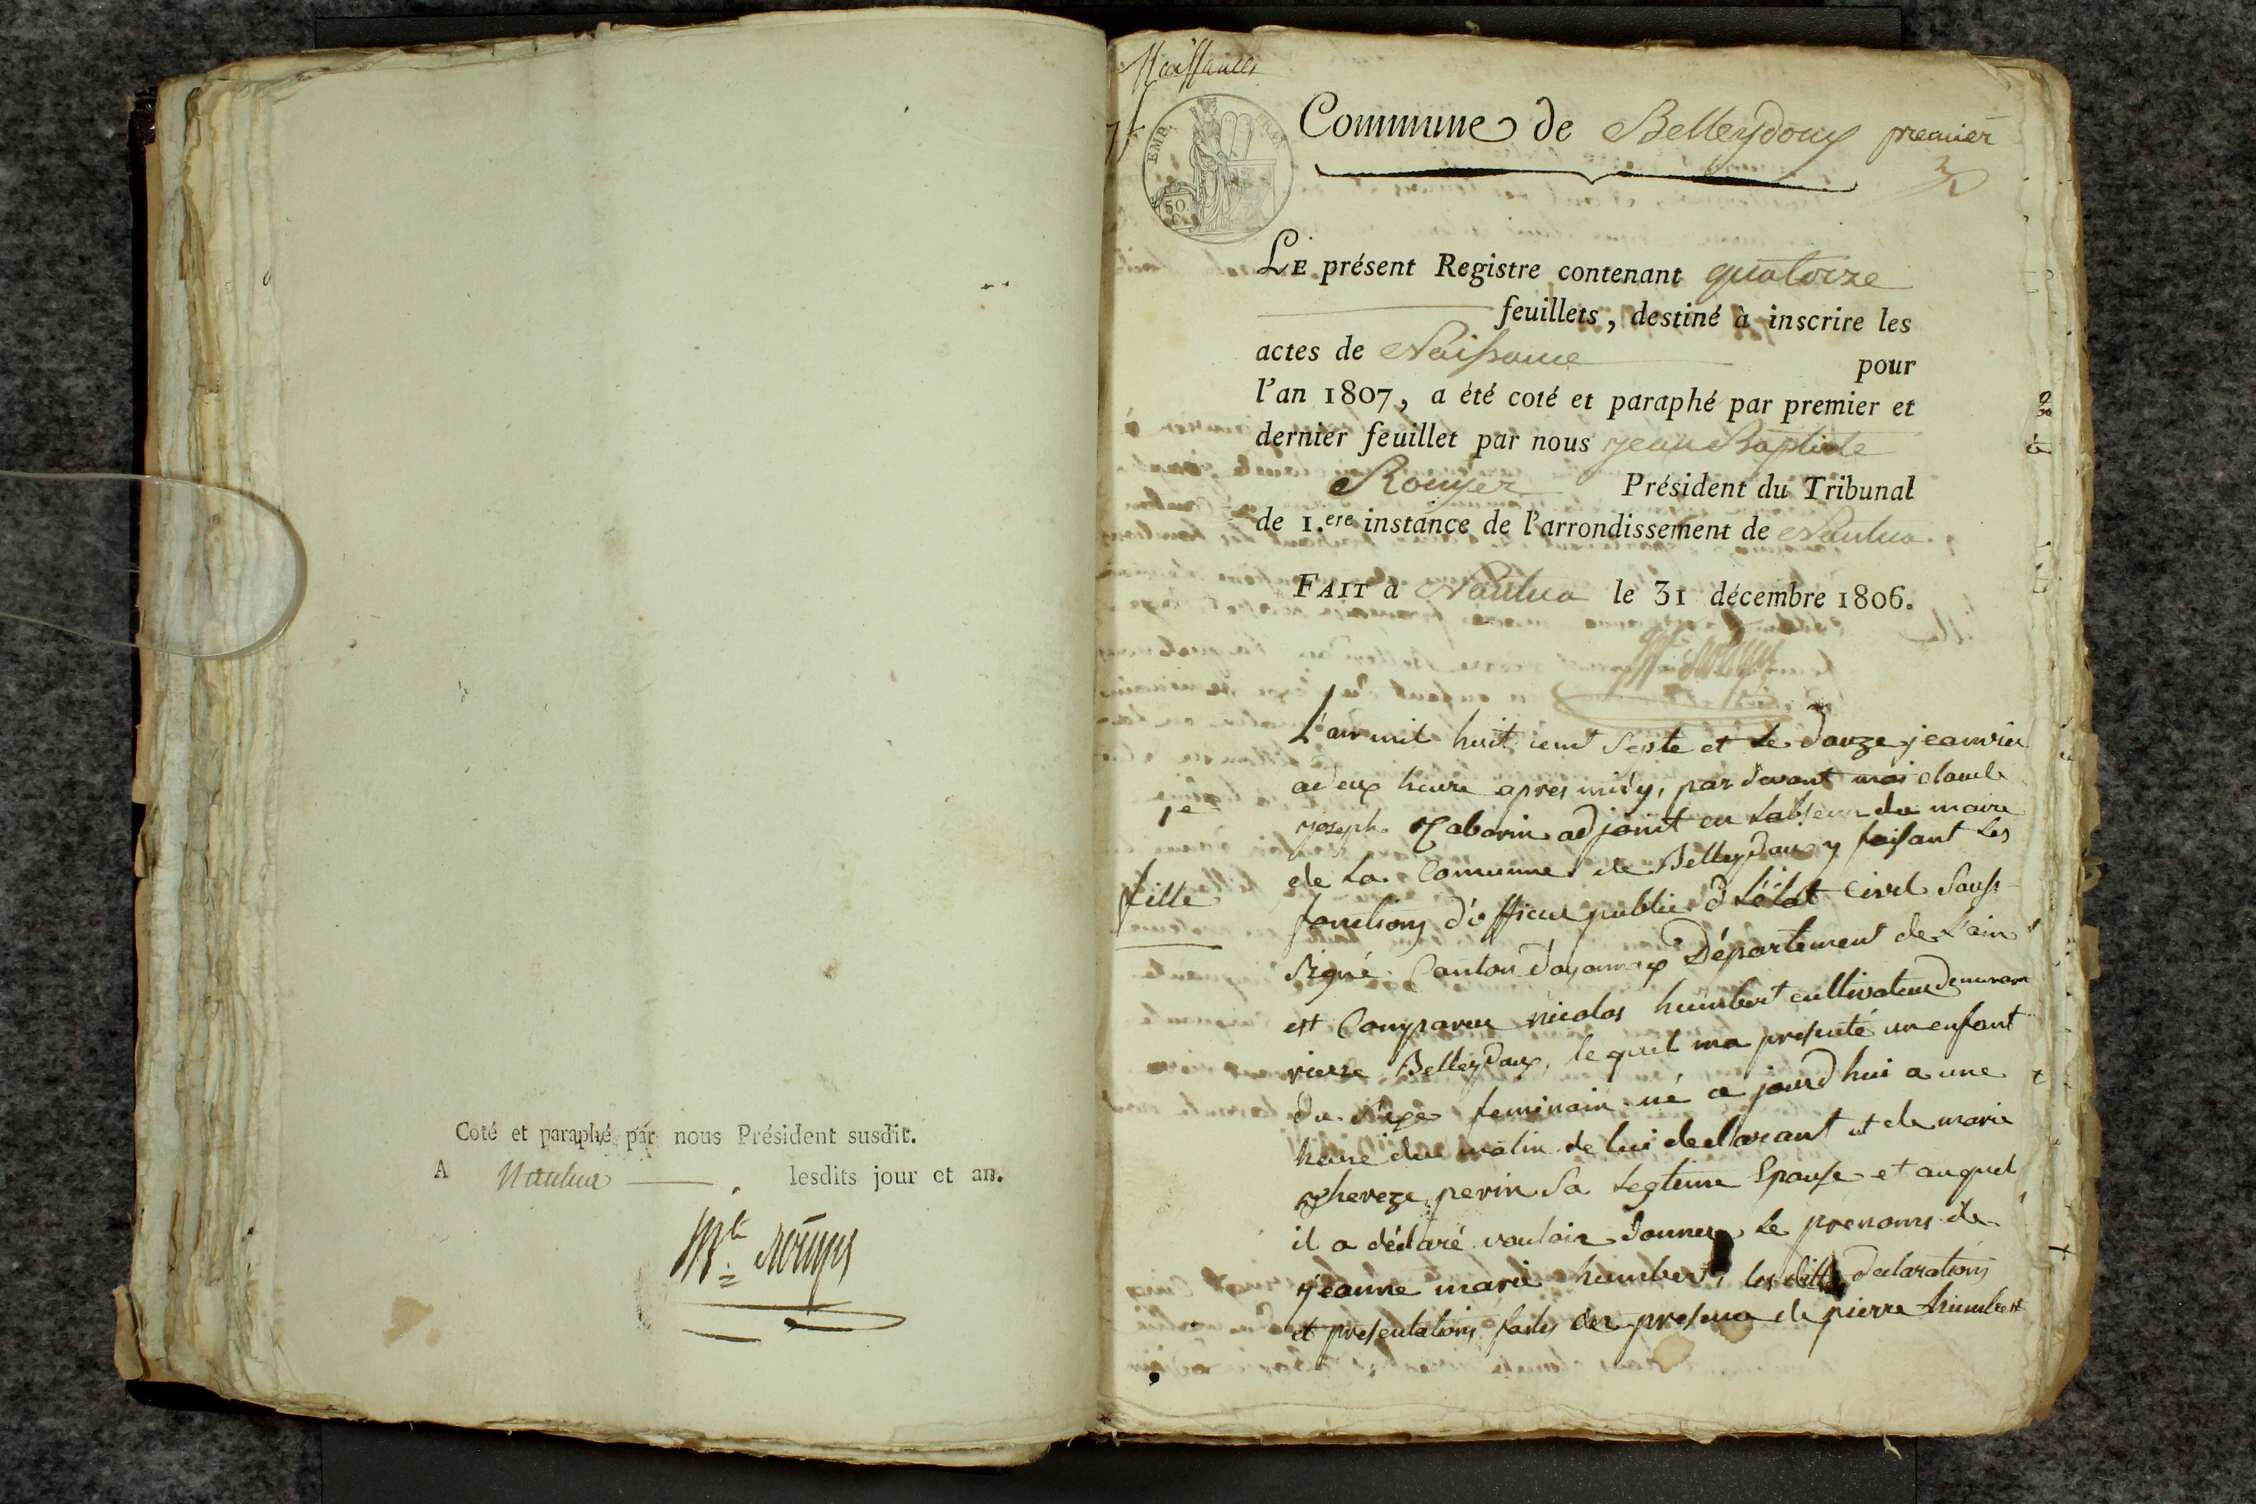 Coté et paraphé par nous Président susdit.
A Nantua lesdits jour et an.
Rouyer
Naissances
Commune de Belleydoux premier
EMP.
50
LE présent Registre contenant quatorze
feuillets, destiné à inscrire les
actes de Naissance pour
l'an 1807, a été coté et paraphé par premier et
dernier feuillet par nous Jean Baptiste
Rouyer Président du Tribunal
de 1.ere instance de l'arrondissement de Nantua.
FAIT à Nantua le 31 décembre 1806.
L'an mil huit cent septe et le douze jeanvier
a deux heure apres midy, par devant moi claude
1e
joseph Tabarin adjoint du maire
de la Commune de Belleydoux y faisant les
fille
fonctions d'officier public d l'état civil souss
signé Canton d'oyonnax Département de L'ain
est Comparue nicolas humbert cultivateur
rierre Belleydoux, le quel ma presenté un enfant
du sexe feminain né a jourd hui a une
heure du matin de lui declarant et de marie
thereze perin sa legtime Epouse et auquel
il a déclaré vouloir donner le prenoms de
jeanne marie humbert, les dittes declarations
et presentations faites en presence de pierre humbert